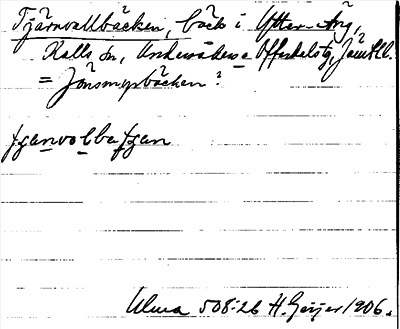 Tjärnvallbäcken, bäck i Ytter-Äng,
Kalls sn, Undersåkers o Offerdals tg, Jämtl.
= Jönsmyrbäcken?
tjanvolbatjan
Ulma 508:26 H. Geijer 1906.